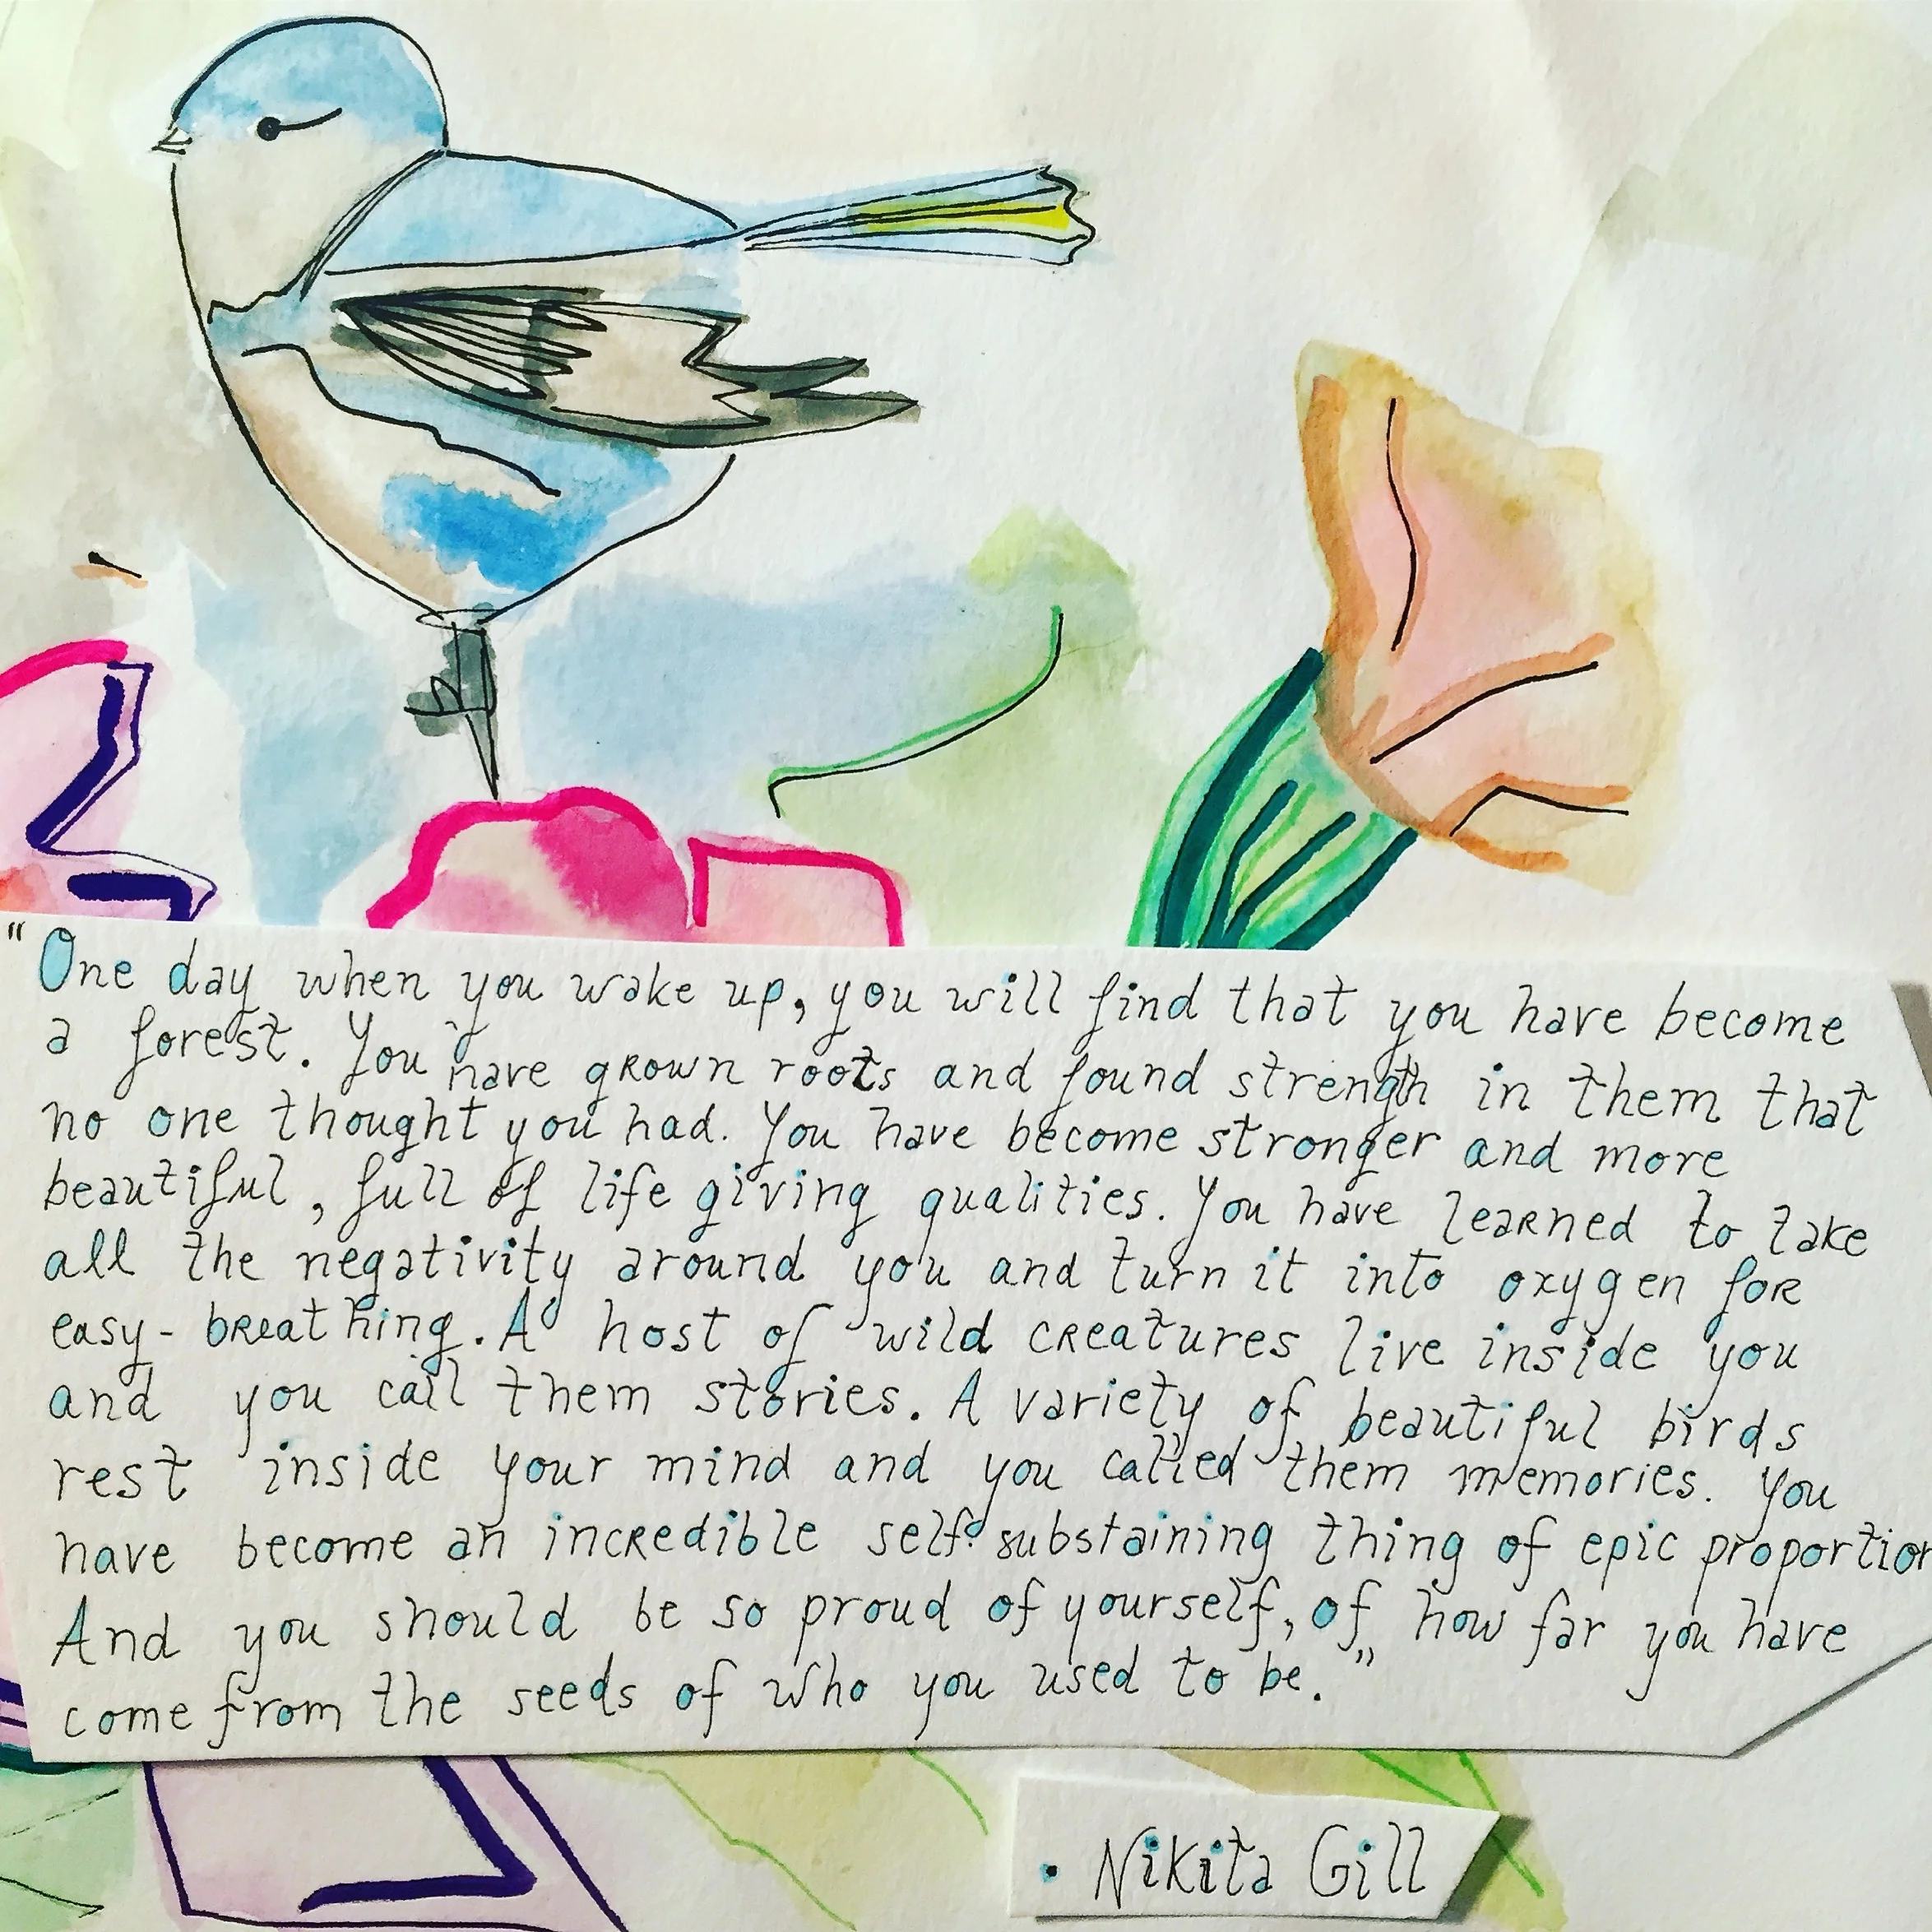 "One day when you wake up, you will find that you have become
a forest. You have grown roots and found strength in them that
no one thought you had. You have become stronger and more
beautiful, full of life giving qualities. You have learned to take
all the negativity around you and turn it into oxygen for
easy-breathing. A host of wild creatures live inside you
and you call them stories. A variety of beautiful birds
rest inside your mind and you called them memories. You
have become an incredible self-substaining thing of epic proportion
And you should be so proud of yourself, of how far you have
come from the seeds of who you used to be."
• Nikita Gill